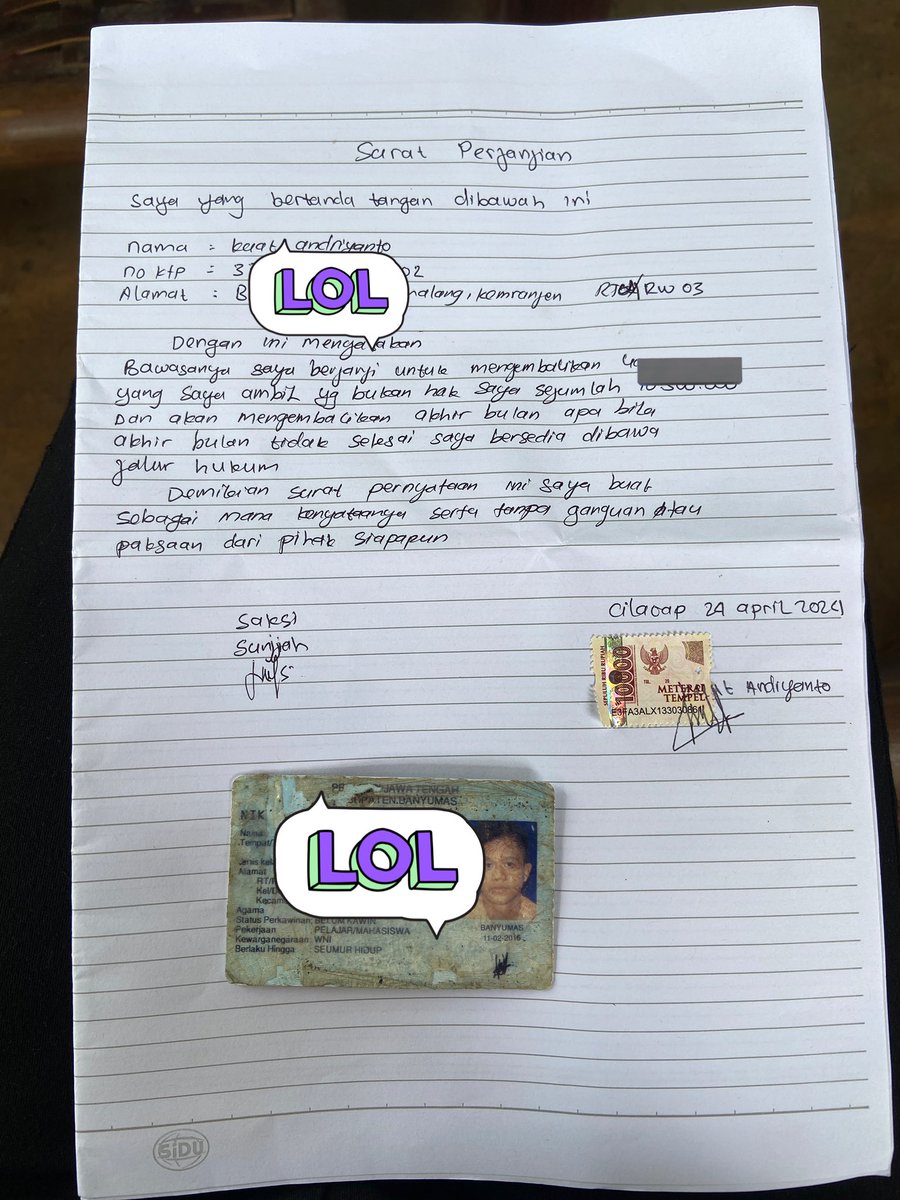 Surat Perjanjian
Saya yang bertanda tangan dibawah ini
nama : buat andriyanto
no ktp : 3 02
Alamat : B malang, kemranjen RT RW 03
LOL
Dengan ini mengatakan
Bawasanya saya berjanji untuk mengembalikan
yang saya ambil yg bukan hak saya sejumlah
Dan akan mengembalikan akhir bulan apa bila
akhir bulan tidak selesai saya bersedia dibawa
jalur hukum
Demikian surat pernyataan ini saya buat
sebagai mana kenyataanya serta tanpa ganguan atau
paksaan dari pihak siapapun
Saksi
Surijah
Cilacap 24 april 2024
SEPULUH RIBU RUPIAH
10000
TGL. 20
METERAI
TEMPEL
E3FA3ALX133030661
At Andiyanto
JAWA TENGAH
BANYUMAS
NIK
Nama
Tempat/
Jenis kel
Alamat
RT/
Kel/D
Kecam
Agama
Status Perkawinan: BELUM KAWIN
Pekerjaan : PELAJAR/MAHASISWA
Kewarganegaraan: WNI
Berlaku Hingga : SEUMUR HIDUP
LOL
BANYUMAS
11-02-2016
SiDU